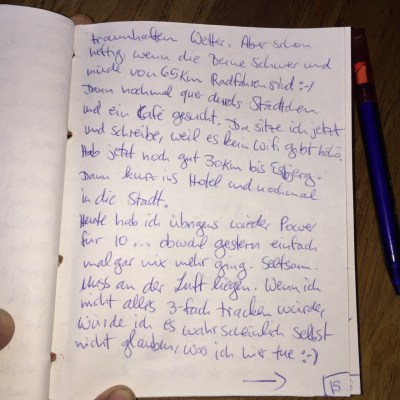 traumhaften Wetter. Aber schon
heftig, wenn die Beine schwer und
müde von 65km Radfahren sind :-)
Dann nochmal quer durchs Städtchen
und ein Café gesucht. Da sitze ich jetzt
und schreibe, weil es kein Wifi gibt
Hab jetzt noch gut 30km bis Esbjerg.
Dann kurz ins Hotel und nochmal
in die Stadt.
Heute hab ich übrigens wieder Power
für 10... obwohl gestern einfach
mal gar nix mehr ging. Seltsam.
Muss an der Luft liegen. Wenn ich
nicht alles 3-fach tracken würde,
würde ich es wahrscheinlich selbst
nicht glauben, was ich hier tue :-)
→
15